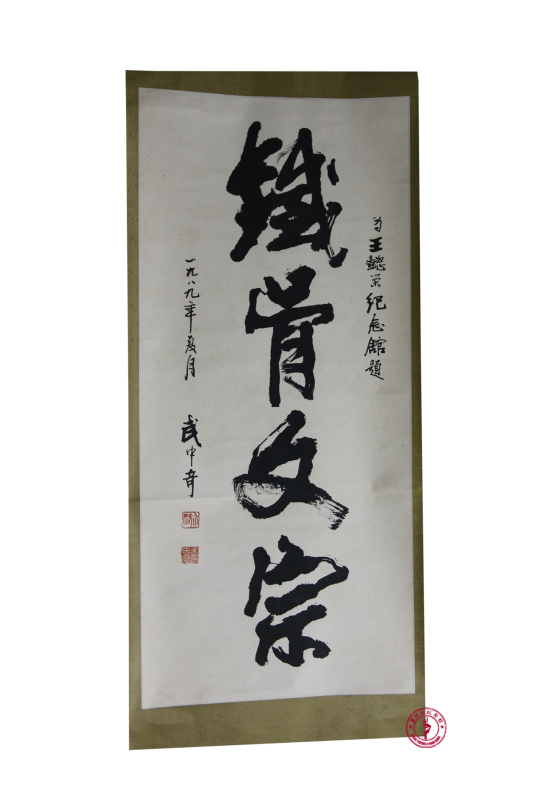 为王懿荣纪念馆题
鐵骨文宗
一九八九年夏月
武中奇